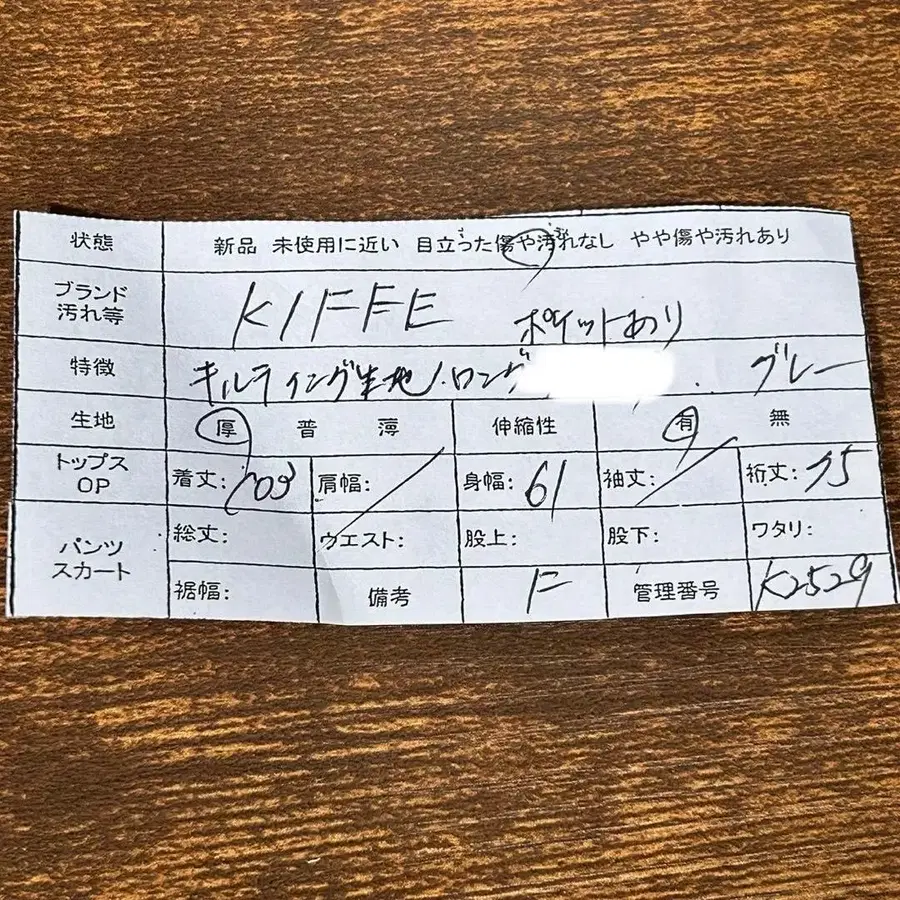 状態 新品 未使用に近い 目立った傷や汚れなし やや傷や汚れあり
ブランド 汚れ等 KIFFE ポケットあり
特徴 キルティング生地.ロング . グレー
生地 厚 普 薄 伸縮性 有 無
トップス OP 着丈:103 肩幅: 身幅:61 袖丈: 裄丈:75
パンツ スカート 総丈: ウエスト: 股上: 股下: ワタリ:
裾幅: 備考 F 管理番号 K2529